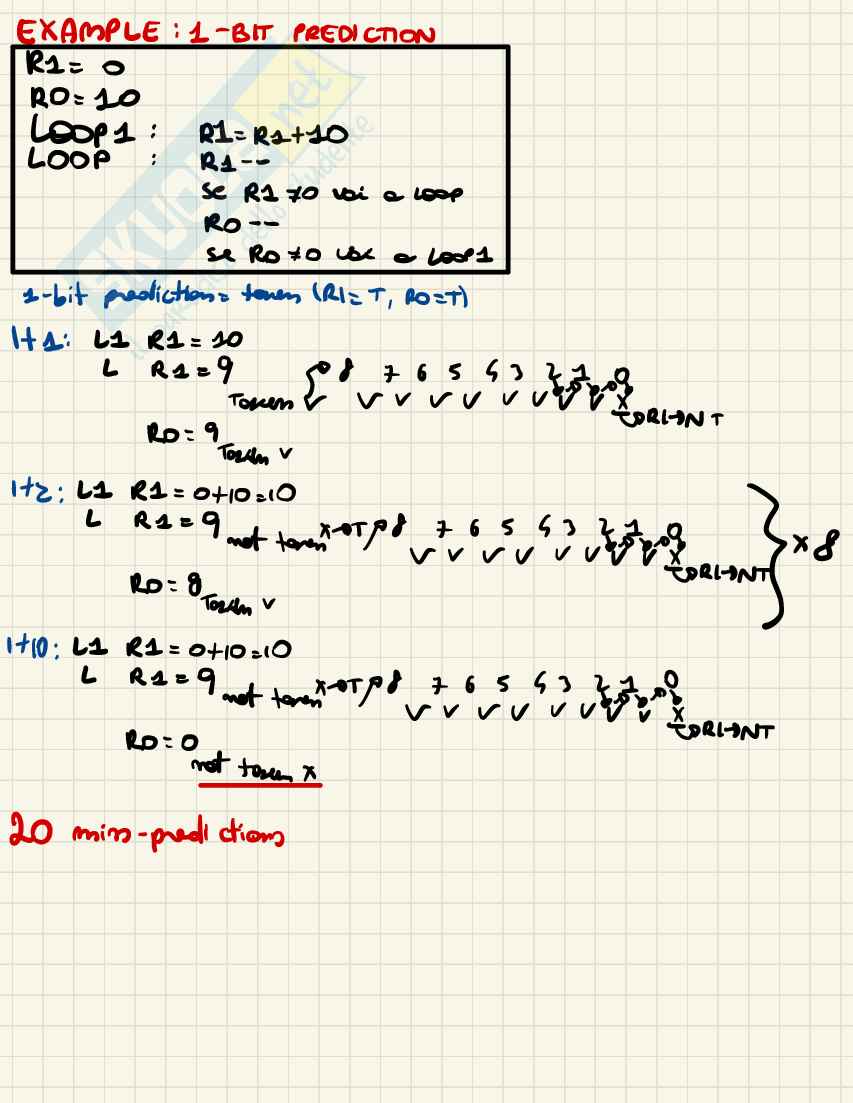 EXAMPLE: 1-BIT PREDICTION
R1= 0
R0=10
LOOP1 : R1=R1+10
LOOP : R1--
se R1≠0 vai a loop
R0--
se R0≠0 vai a loop1
1-bit prediction= taken (R1=T, R0=T)
It1: L1 R1=10
L R1=9 Taken ✓ 8 7 6 5 4 3 2 1 0
✓ ✓ ✓ ✓ ✓ ✓ ✓ ✓ x
R1→NT
R0=9 Taken ✓
It2: L1 R1=0+10=10
L R1=9 not taken x→T 8 7 6 5 4 3 2 1 0
✓ ✓ ✓ ✓ ✓ ✓ ✓ ✓ x
R1→NT
x 8
R0=8 Taken ✓
It10: L1 R1=0+10=10
L R1=9 not taken x→T 8 7 6 5 4 3 2 1 0
✓ ✓ ✓ ✓ ✓ ✓ ✓ ✓ x
R1→NT
R0=0 not taken x
20 miss-predictions
SKUOLA.net